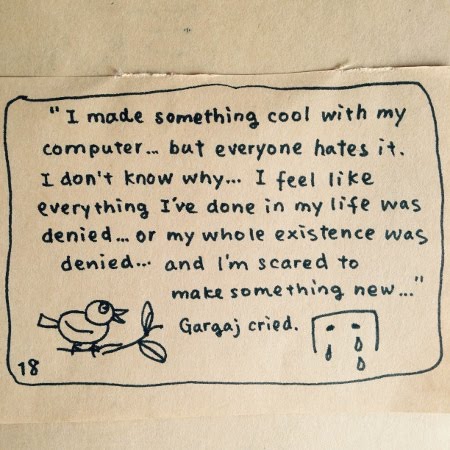 "I made something cool with my
computer... but everyone hates it.
I don't know why... I feel like
everything I've done in my life was
denied... or my whole existence was
denied... and I'm scared to
make something new..."
Gargaj cried.
18